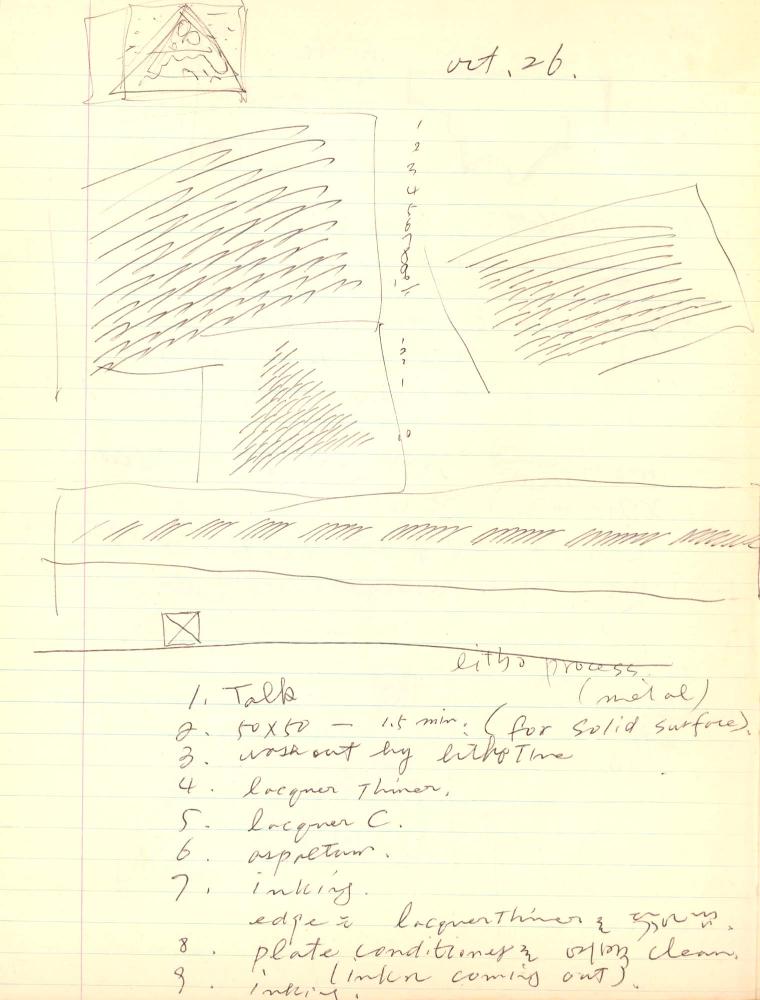 oct. 26.
1
2
3
4
5
6
7
litho process
(metal)
1. Talk
2. 50 x 50 — 1.5 min. (for solid surface).
3. wash out by lithotine
4. lacquer Thiner.
5. lacquer C.
6. aspaltum.
7. inking.
edge 는 lacquer Thiner 로
8. plate conditioner 로 clean.
(inkn coming out).
9. inking.